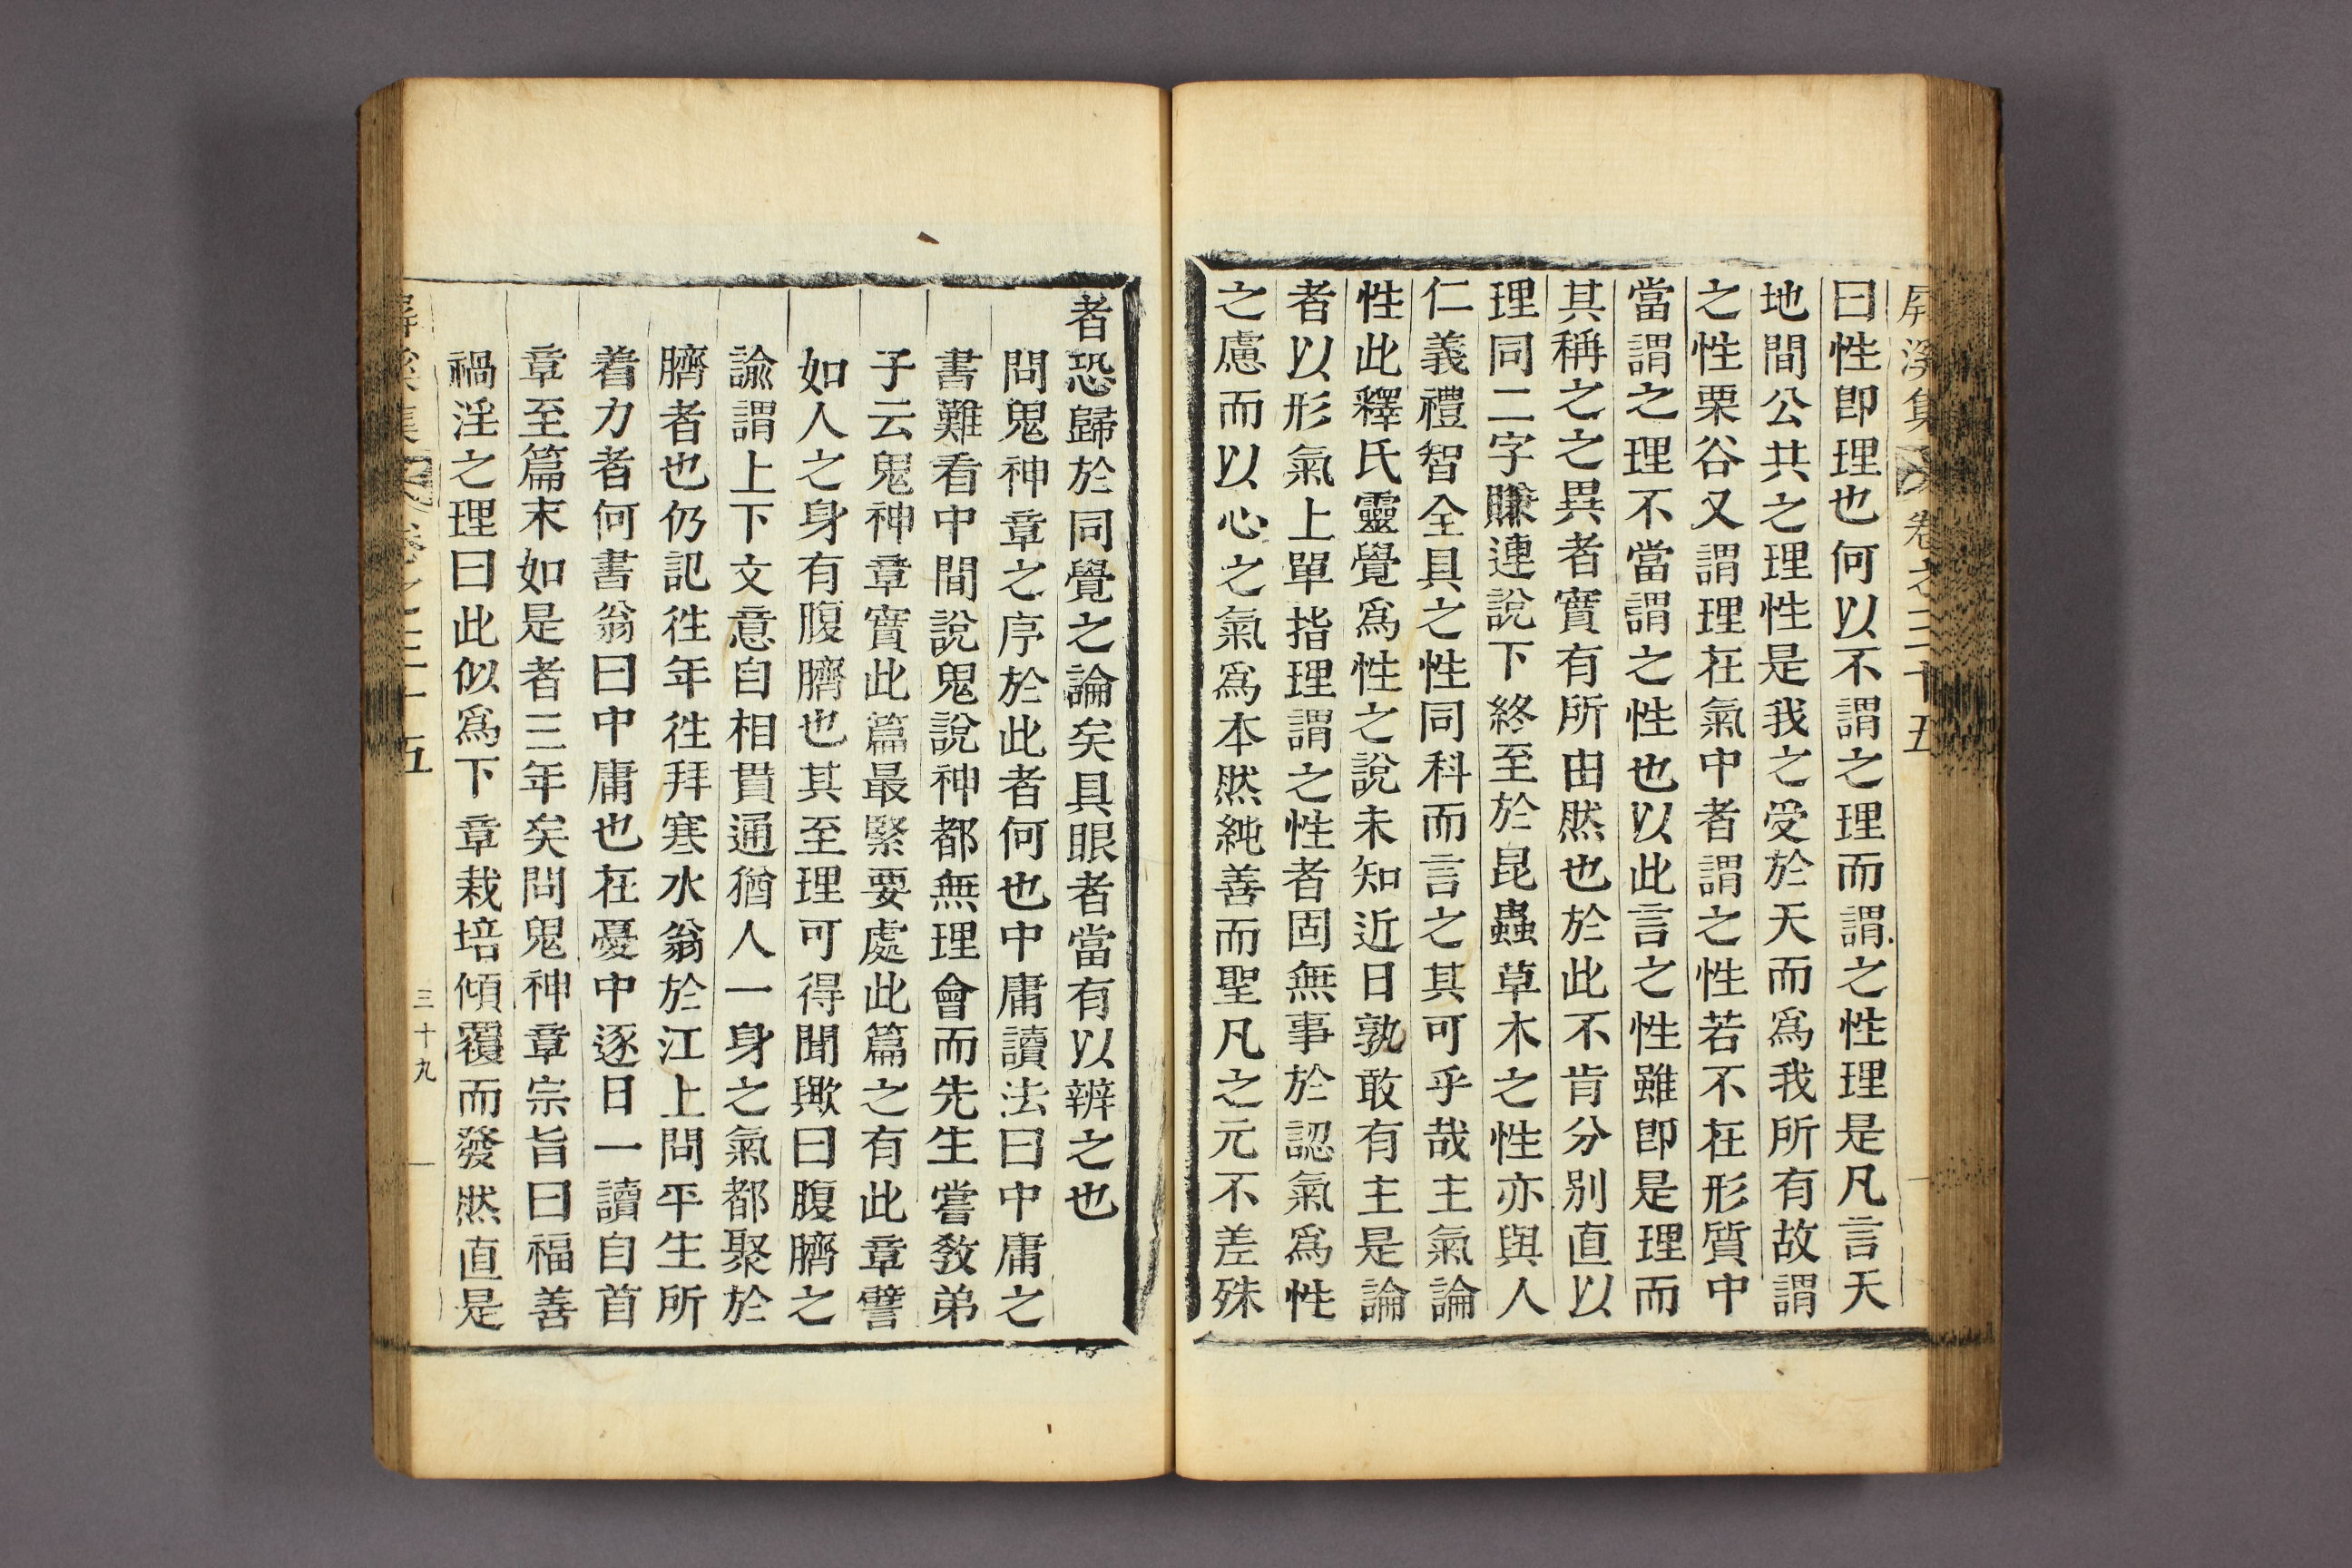 屏溪集 卷之三十五
曰性卽理也何以不謂之理而謂之性理是凡言天
地間公共之理性是我之受於天而爲我所有故謂
之性栗谷又謂理在氣中者謂之性若不在形質中
當謂之理不當謂之性也以此言之性雖卽是理而
其稱之之異者實有所由然也於此不肯分別直以
理同二字賺連說下終至於昆蟲草木之性亦與人
仁義禮智全具之性同科而言之其可乎哉主氣論
性此釋氏靈覺爲性之說未知近日孰敢有主是論
者以形氣上單指理謂之性者固無事於認氣爲性
之慮而以心之氣爲本然純善而聖凡之元不差殊
者恐歸於同覺之論矣具眼者當有以辨之也
問鬼神章之序於此者何也中庸讀法曰中庸之
書難看中間說鬼說神都無理會而先生嘗敎弟
子云鬼神章實此篇最緊要處此篇之有此章譬
如人之身有腹臍也其至理可得聞歟曰腹臍之
諭謂上下文意自相貫通猶人一身之氣都聚於
臍者也仍記徃年徃拜寒水翁於江上問平生所
着力者何書翁曰中庸也在憂中逐日一讀自首
章至篇末如是者三年矣問鬼神章宗旨曰福善
禍淫之理曰此似爲下章栽培傾覆而發然直是
屏溪集 卷之三十五 三十九